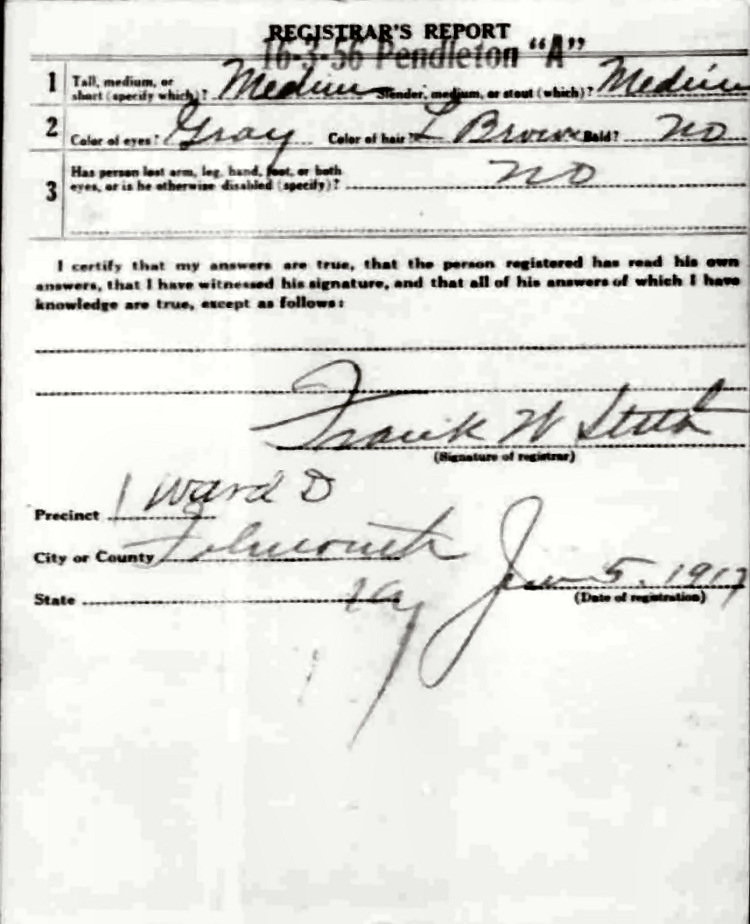 REGISTRAR'S REPORT
16-3-56 Pendleton "A"
1 Tall, medium, or short (specify which)? Medium Slender, medium, or stout (which)? Medium
2 Color of eyes? Gray Color of hair? L Brown Bald? No
3 Has person lost arm, leg, hand, foot, or both eyes, or is he otherwise disabled (specify)? no
I certify that my answers are true, that the person registered has read his own
answers, that I have witnessed his signature, and that all of his answers of which I have
knowledge are true, except as follows:
Frank W
(Signature of registrar)
Precinct 1 Ward D
City or County Falmouth
State Ky Jun 5. 1917
(Date of registration)